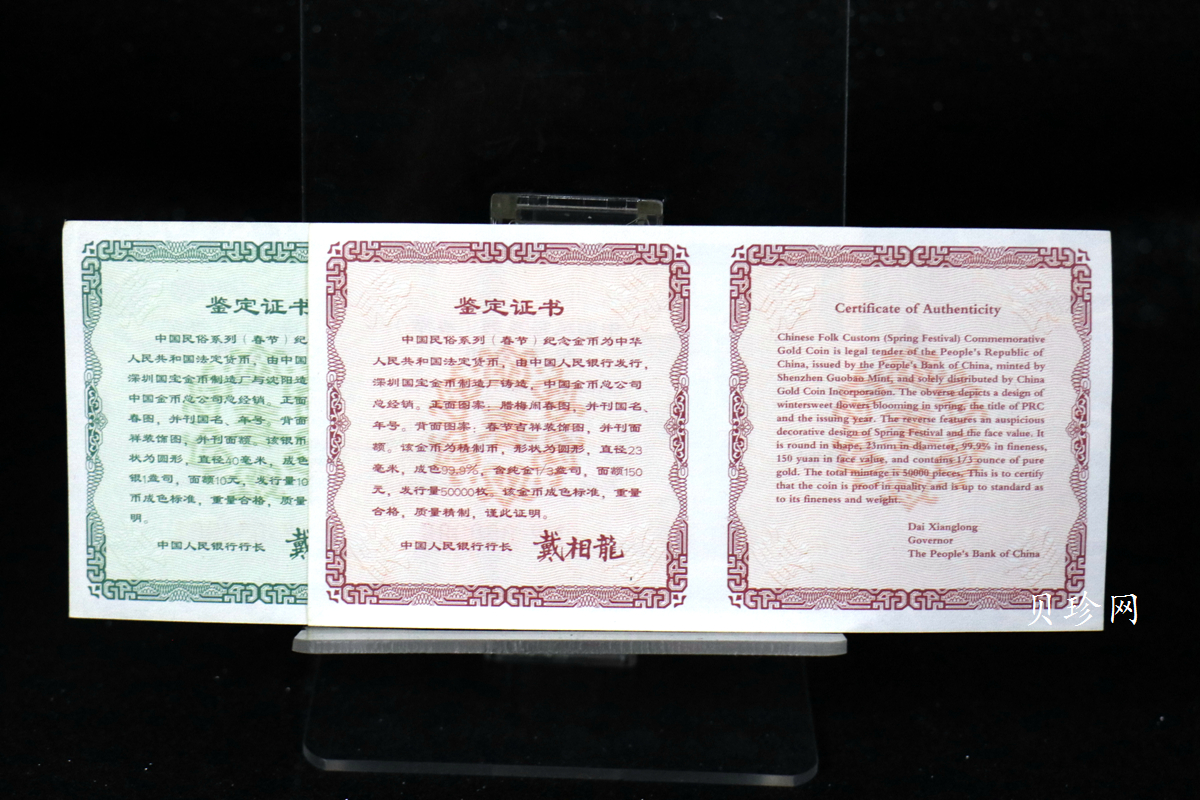 鉴定证书
中国民俗系列（春节）纪
人民共和国法定货币，由中国
深圳国宝金币制造厂与沈阳造
中国金币总公司总经销。正面
春图，并刊国名、年号。背面
祥装饰图，并刊面额。该银币
状为圆形，直径40毫米，成色
银1盎司，面额10元，发行量10
币成色标准，重量合格，质量
明。
中国人民银行行长 戴
鉴定证书
中国民俗系列（春节）纪念金币为中华
人民共和国法定货币，由中国人民银行发行，
深圳国宝金币制造厂铸造，中国金币总公司
总经销。正面图案：腊梅闹春图，并刊国名、
年号。背面图案：春节吉祥装饰图，并刊面
额。该金币为精制币，形状为圆形，直径23
毫米，成色99.9%，含纯金1/3盎司，面额150
元，发行量50000枚。该金币成色标准，重量
合格，质量精制，谨此证明。
中国人民银行行长 戴相龍
Certificate of Authenticity
Chinese Folk Custom (Spring Festival) Commemorative
Gold Coin is legal tender of the People's Republic of
China, issued by the People's Bank of China, minted by
Shenzhen Guobao Mint, and solely distributed by China
Gold Coin Incorporation. The obverse depicts a design of
wintersweet flowers blooming in spring, the title of PRC
and the issuing year. The reverse features an auspicious
decorative design of Spring Festival and the face value. It
is round in shape, 23mm in diameter, 99.9% in fineness,
150 yuan in face value, and contains 1/3 ounce of pure
gold. The total mintage is 50000 pieces. This is to certify
that the coin is proof in quality and is up to standard as
to its fineness and weight.
Dai Xianglong
Governor
The People's Bank of China
贝珍网